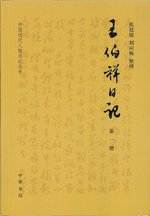 张廷银 刘应梅 整理
王伯祥日记
第一册
中国近代人物日记丛书
中华书局